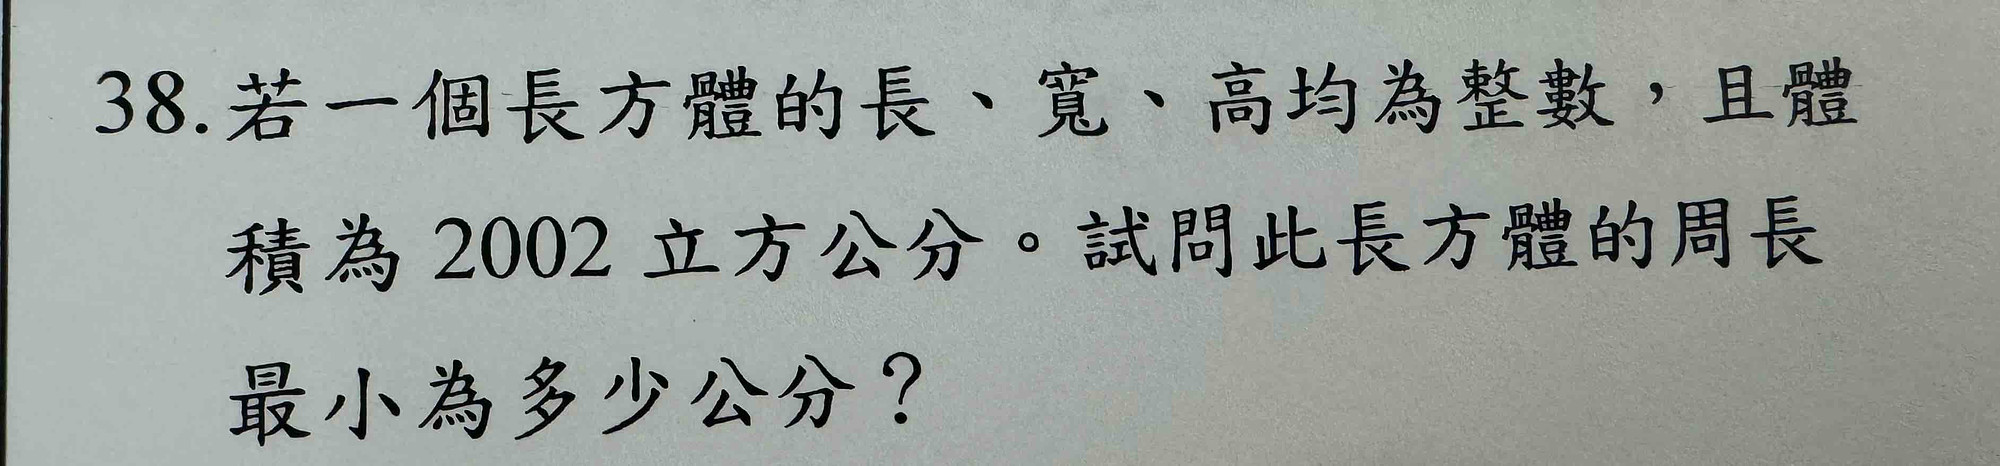 38. 若一個長方體的長、寬、高均為整數，且體
積為 2002 立方公分。試問此長方體的周長
最小為多少公分？